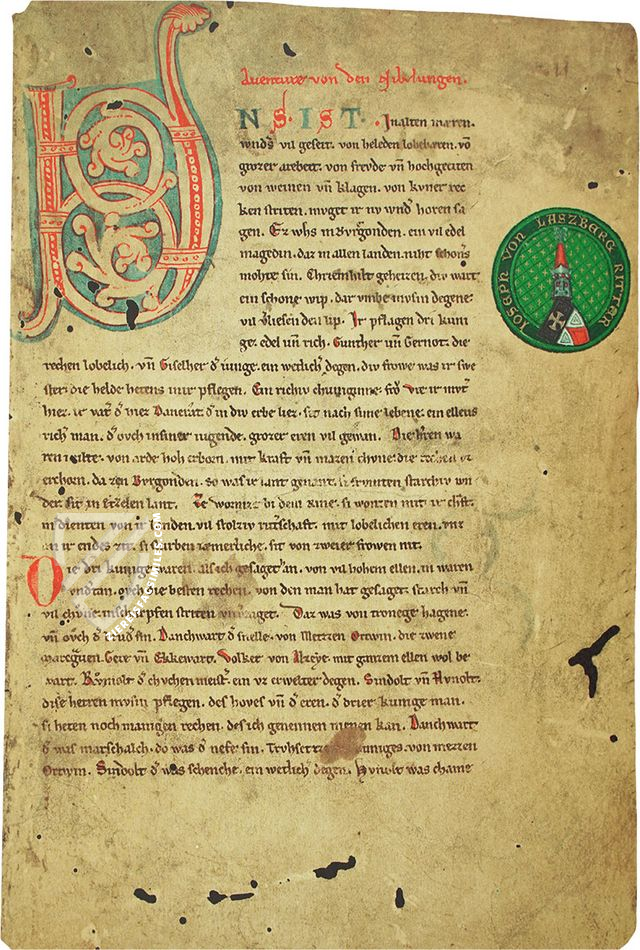 Auenture von den Nibelungen.
VNS · IST · In alten mæren.
wnds vil geseit. von heleden lobebæren. vō
grozer arebeit. von frevde vn̄ hochgeciten
von weinen vn̄ klagen. von kvner rec
ken striten. mvget ir nv wnd̾ horen sa
gen. Ez whs in Bvrgonden. ein vil edel
magedin. daz in allen landen. niht schoners
mohte sin. Chriemhilt geheizen. div wart
ein schone wip. dar vmbe mvsin degene.
vil vliesen den lip. Ir pflagen dri kuni
ge. edel vn̄ rich. Gunther vn̄ Gernot. die
rechen lobelich. vn̄ Giselher d̾ iunge. ein wetlich̾ degen. div frowe was ir swe
ster. die helde hetens inir pflegen. Ein richiv chuniginne. frō Vte ir mvt̾
hiez. ir vat̾ d̾ hiez Dancrat. d̾ in div erbe liez. sit nach sime lebene. ein ellens
rich man. d̾ ovch in siner iugende. grozer eren vil gewan. Die h̾ren wa
ren milte. von arde hoh erborn. mit kraft vn̄ mazen chvne. die rechen vz
erchorn. da zen Bvrgonden. so was ir lant genant. si frvmten starchiv wn
der. sit in Etzelen lant. Ze wormze bi dem Rine. si wonten mit ir chft.
in dienten von ir landen. vil stolziv rit̾schaft. mit lobelichen eren. vnz
an ir endes zit. si sturben iæmerliche. sit von zweier frowen nit.
Die dri kunige waren. als ich gesaget han. von vil hohem ellen. in waren
vndtan. ovch die besten rechen. von den man hat gesaget. starch vn̄
vil chvne. in scharpfen striten vnv̾zaget. Daz was von tronege hagene.
vn̄ ovch d̾ brud̾ sin. Danchwart d̾ snelle. von Metzen Ortwin. die zwene
marcgven. Gere vn̄ Ekkewart. Volker von Alzeye. mit ganzem ellen wol be
wart. Rvmolt d̾ chvchen meist̾. ein vz erwelter degen. Sindolt vn̄ Hvnolt.
dise herren mvsin pflegen. des hoves vn̄ d̾ eren. d̾ drier kunige man.
si heten noch manigen rechen. des ich genennen nienen kan. Danchwart
d̾ was marschalch. do was d̾ nefe sin. Truhsetze kuniges. von metzen
Ortwin. Sindolt d̾ was schenche. ein wetlich degen. Hvnolt was chame
JOSEPH VON LASZBERG RITTER